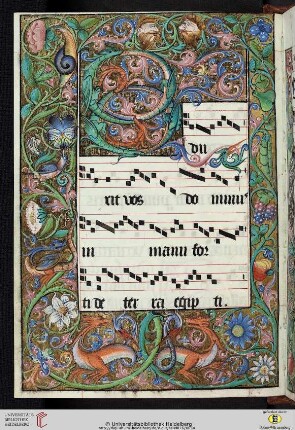 E du
xit vos do minus
in manu for
ti de ter ra egyp ti.
UNIVERSITÄTS-
BIBLIOTHEK
HEIDELBERG
© Universitätsbibliothek Heidelberg